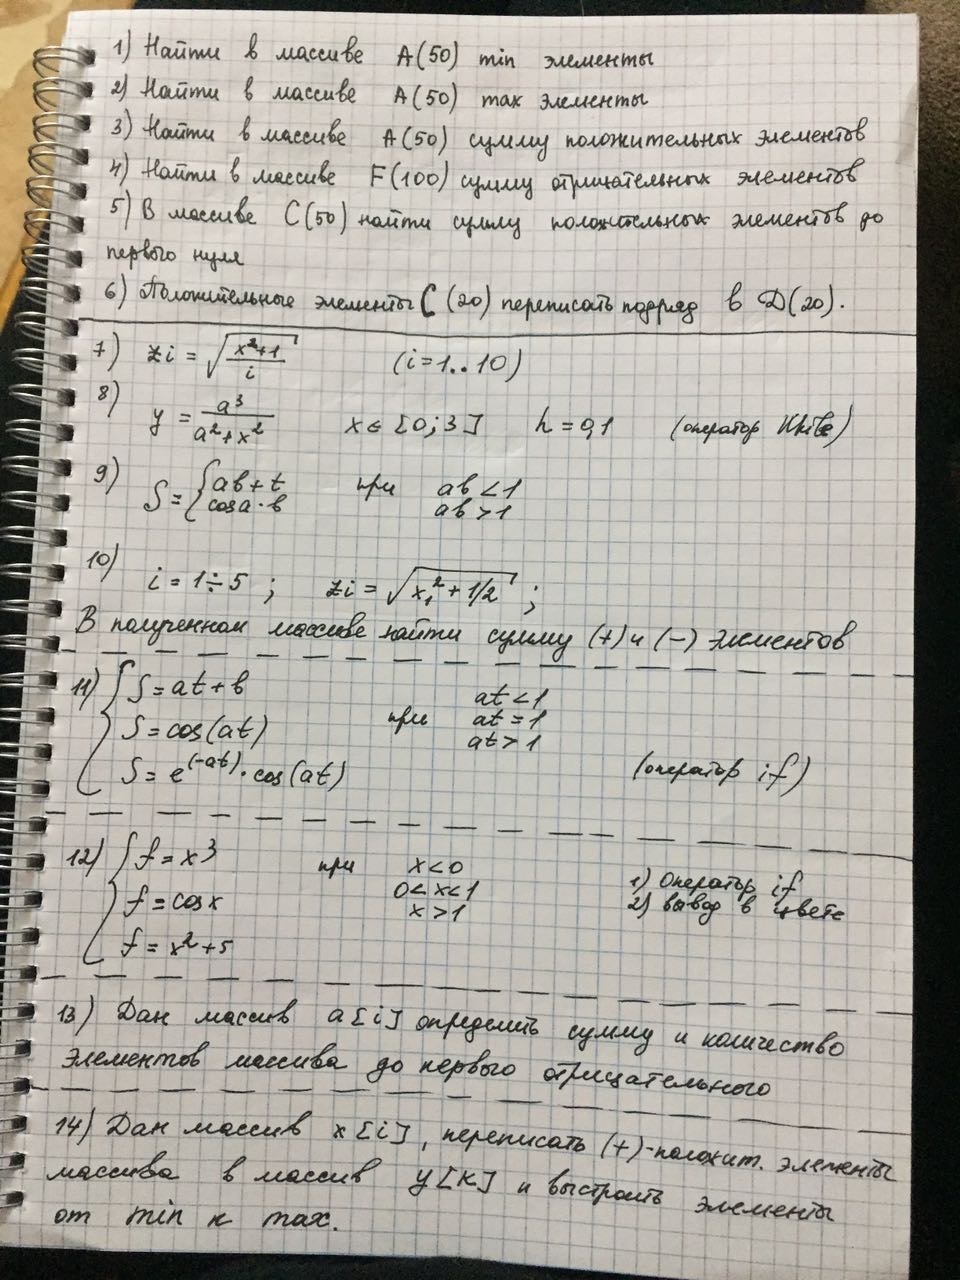 1) Найти в массиве A(50) min элементы
2) Найти в массиве A(50) max элементы
3) Найти в массиве A(50) сумму положительных элементов
4) Найти в массиве F(100) сумму отрицательных элементов
5) В массиве C(50) найти сумму положительных элементов до
первого нуля
6) Положительные элементы C(20) переписать подряд в D(20).
7) zi = √((x²+1)/i) (i=1..10)
8) y = a³/(a²+x²) x∈[0;3] h=0,1 (оператор While)
9) S = { ab+t при ab<1
cosa·b ab>1
10) i=1÷5; zi = √(x₁²+1/2);
В полученном массиве найти сумму (+) и (-) элементов
11) { S=at+b at<1
S=cos(at) при at=1
at>1
S=e^(-at)·cos(at) (оператор if)
12) { f=x³ при x<0 1) Оператор if
f=cosx 0<x<1 2) вывод в цвете
x>1
f=x²+5
13) Дан массив a[i] определить сумму и количество
элементов массива до первого отрицательного
14) Дан массив x[i], переписать (+)-положит. элементы
массива в массив y[k] и выстроить элементы
от min к max.